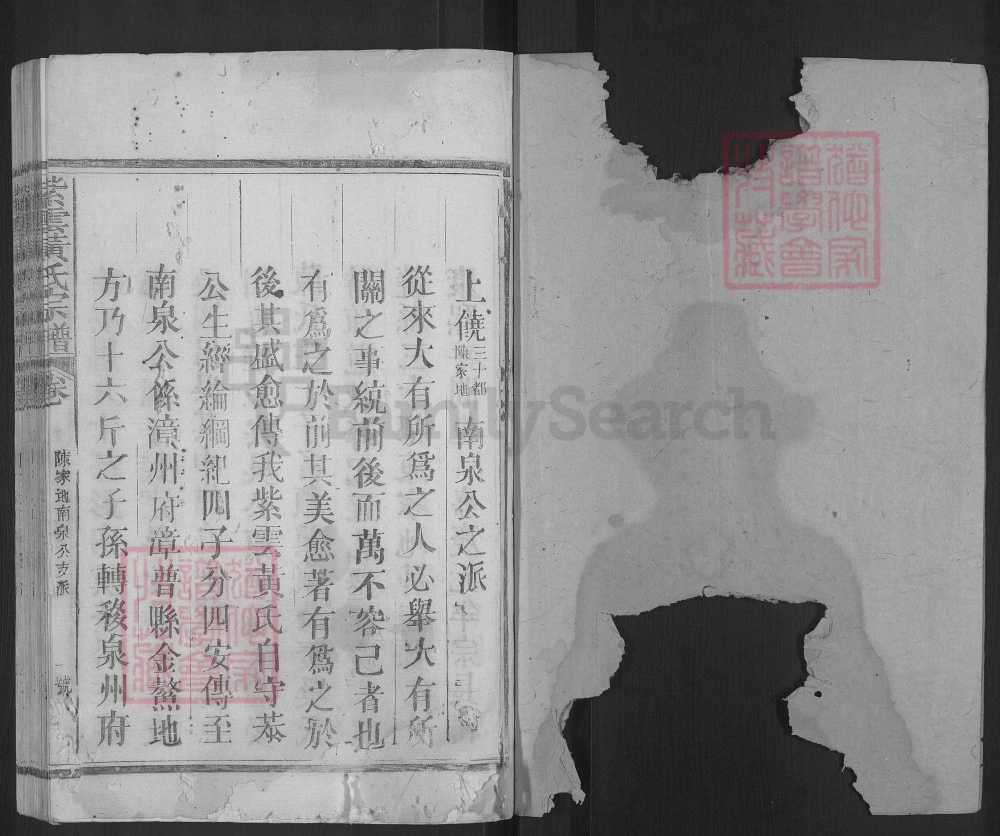 上饒三十都陳家地南泉公之派
從來大有所爲之人必舉大有所
關之事統前後而萬不容已者也
有爲之於前其美愈著有爲之於
後其盛愈傳我紫雲黃氏自守恭
公生經綸綱紀四子分四安傳至
南泉公係漳州府漳普縣金鰲地
方乃十六斤之子孫轉移泉州府
紫雲黃氏宗譜
卷
陳家地南泉公支派
一號
譜學會
FamilySearch